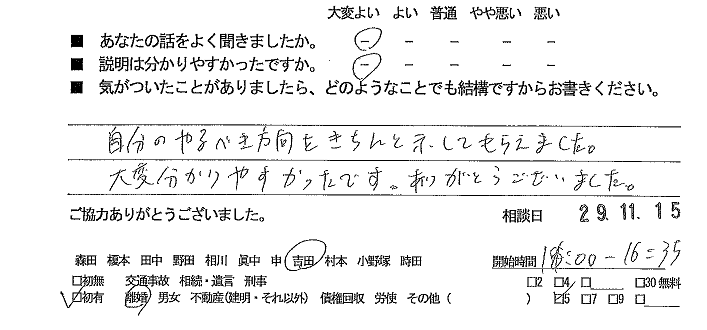 大変よい よい 普通 やや悪い 悪い
■ あなたの話をよく聞きましたか。 － － － － －
■ 説明は分かりやすかったですか。 － － － － －
■ 気がついたことがありましたら、どのようなことでも結構ですからお書きください。
自分のやるべき方向をきちんと示してもらえました。
大変分かりやすかったです。ありがとうございました。
ご協力ありがとうございました。 相談日 29.11.15
森田 榎本 田中 野田 相川 眞中 申 吉田 村本 小野塚 時田 開始時間 :00－16:35
□初無 交通事故 相続・遺言 刑事 □2 □4 □ □30 無料
□初有 離婚 男女 不動産(建明・それ以外) 債権回収 労使 その他 ( ) □5 □7 □9 □